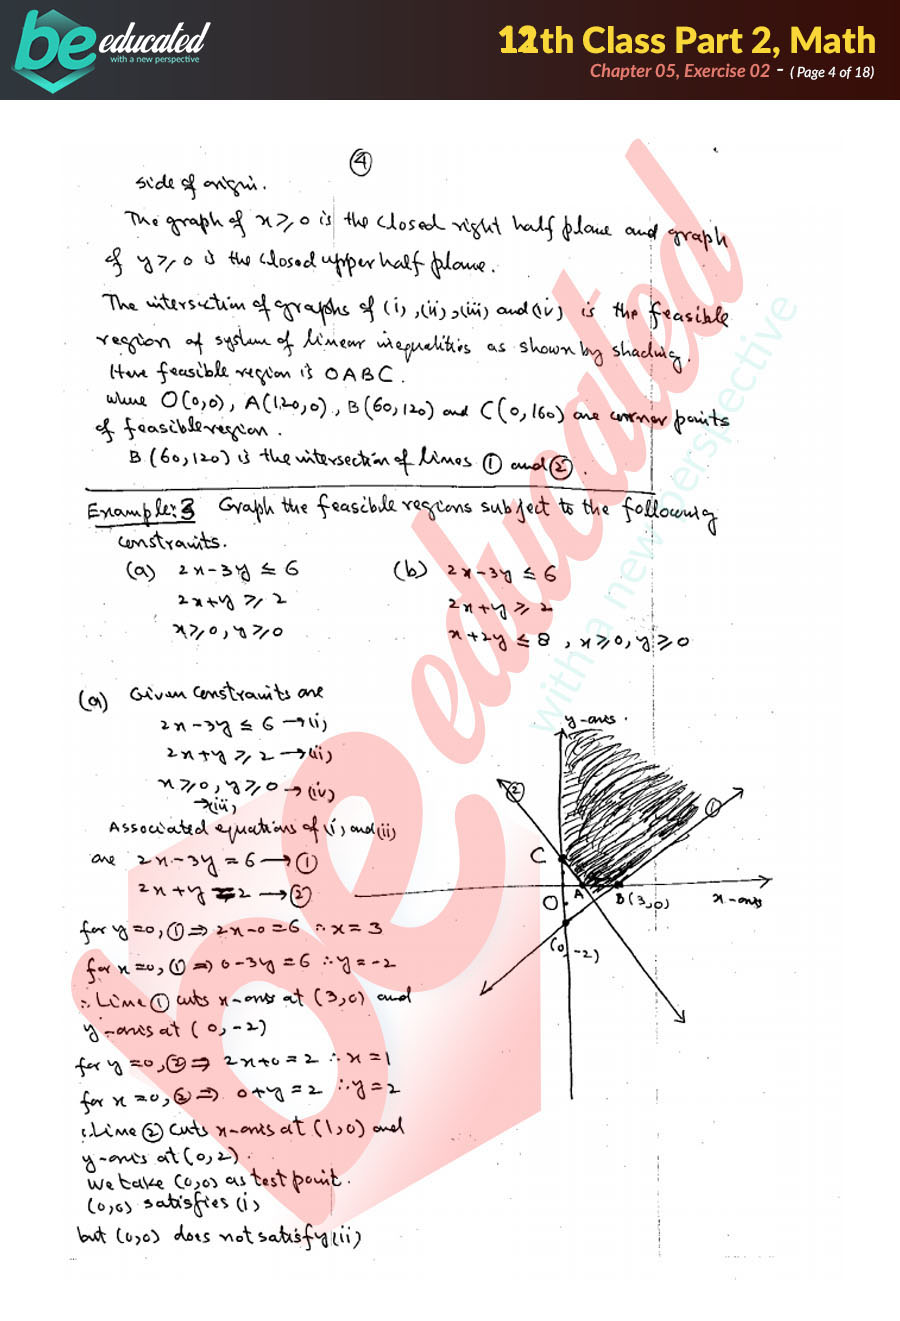 be educated
with a new perspective
12th Class Part 2, Math
Chapter 05, Exercise 02 - ( Page 4 of 18)
④
side of origin.
The graph of x ⩾ 0 is the closed right half plane and graph
of y ⩾ 0 is the closed upper half plane.
The intersection of graphs of (i), (ii), (iii) and (iv) is the feasible
region of system of linear inequalities as shown by shading.
Here feasible region is OABC.
where O(0,0), A(120,0), B(60,120) and C(0,160) are corner points
of feasible region.
B(60,120) is the intersection of lines ① and ②.
Example: 3 Graph the feasible regions subject to the following
constraints.
(a) 2x-3y ≤ 6 (b) 2x-3y ≤ 6
2x+y ⩾ 2 2x+y ⩾ 2
x⩾0, y⩾0 x+2y ≤ 8 , x⩾0, y⩾0
(a) Given constraints are
2x-3y ≤ 6 → (i)
2x+y ⩾ 2 → (ii)
x⩾0, y⩾0 → (iv)
→(iii)
Associated equations of (i) and (ii)
are 2x-3y = 6 → ①
2x+y = 2 → ②
for y=0, ① ⇒ 2x-0=6 ∴ x=3
for x=0, ① ⇒ 0-3y=6 ∴ y=-2
∴ Line ① cuts x-axis at (3,0) and
y-axis at (0,-2)
for y=0, ② ⇒ 2x+0=2 ∴ x=1
for x=0, ② ⇒ 0+y=2 ∴ y=2
∴ Line ② cuts x-axis at (1,0) and
y-axis at (0,2).
We take (0,0) as test point.
(0,0) satisfies (i)
but (0,0) does not satisfy (ii)
y-axis.
②
①
C
O
A
B(3,0)
x-axis
(0,-2)
be educated
with a new perspective